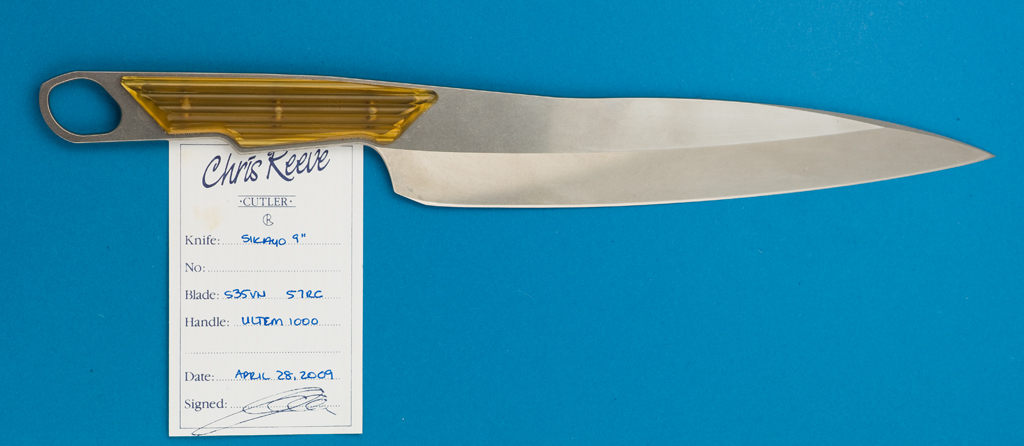 Chris Reeve
·CUTLER·
R
Knife: SIKAYO 9"
No:
Blade: S35VN 57RC
Handle: ULTEM 1000
Date: APRIL 28, 2009
Signed: